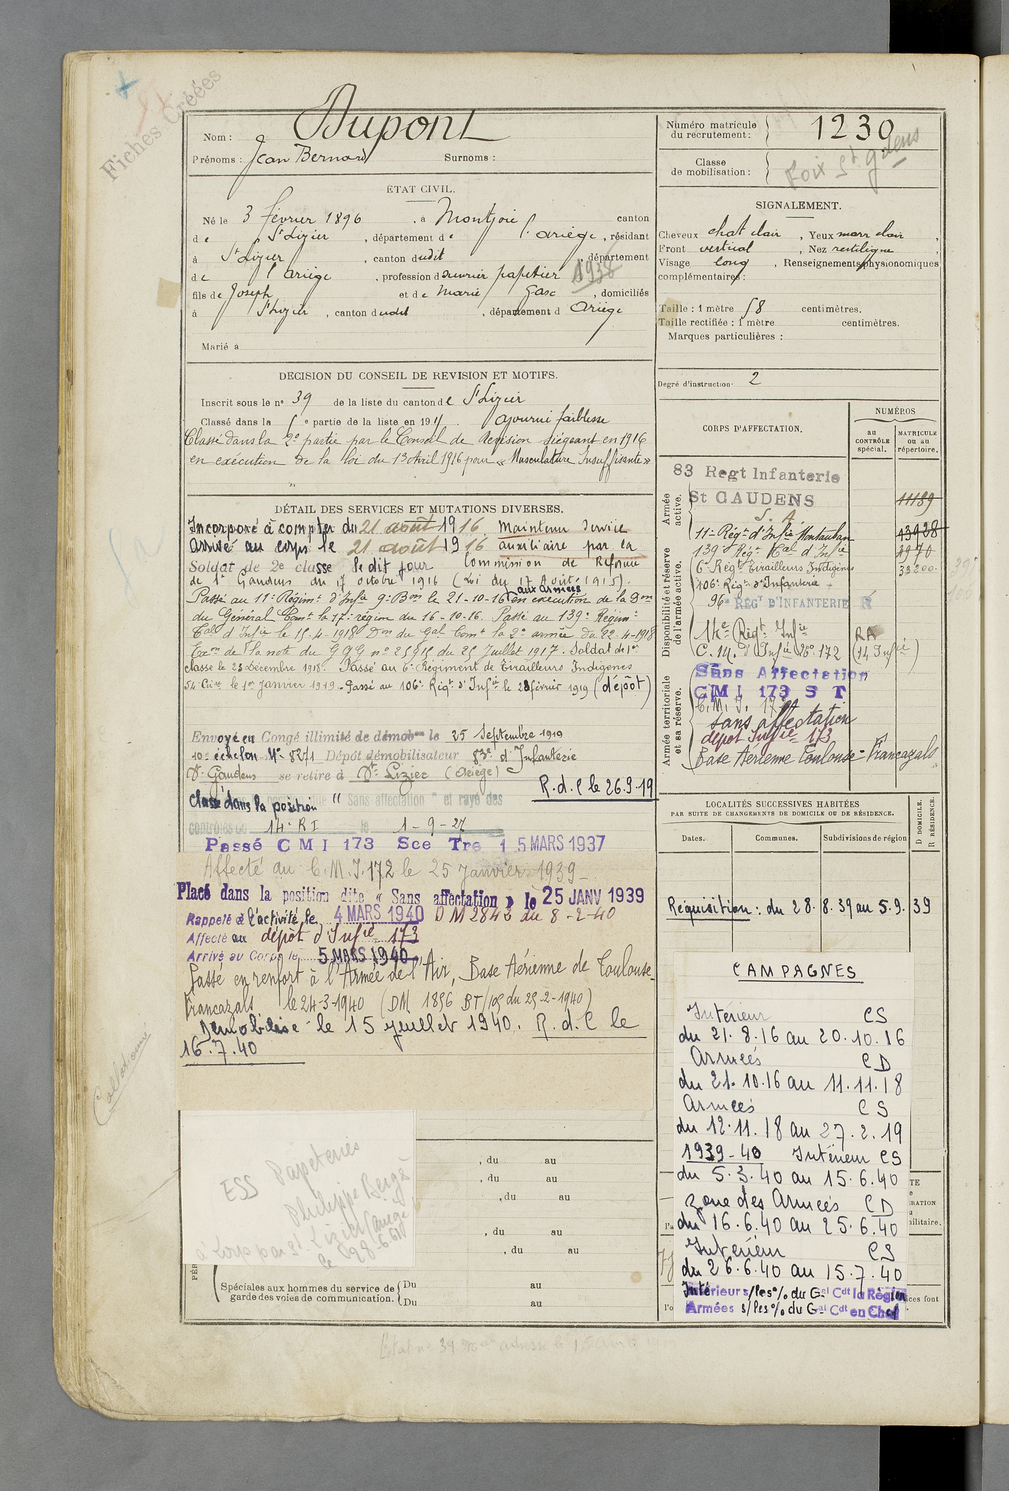 Fiches Créées
Nom : Dupont
Prénoms : Jean Bernard Surnoms :
Numéro matricule du recrutement : 1230
Classe de mobilisation :
Foix St Gaudens
ÉTAT CIVIL.
Né le 3 février 1896, à Montjoie canton
de St Lizier, département de l'ariège, résidant
à St Lizier, canton dudit département
de l'ariège, profession d'ouvrier papetier
1938
fils de Joseph et de Marie Gasc, domiciliés
à St Lizier, canton dudit, département d Ariège
Marié à
SIGNALEMENT.
Cheveux chat clair, Yeux marr clair,
Front vertical, Nez rectiligne,
Visage long, Renseignements physionomiques
complémentaires :
Taille : 1 mètre 58 centimètres.
Taille rectifiée : 1 mètre centimètres.
Marques particulières :
Degré d'instruction 2
DECISION DU CONSEIL DE REVISION ET MOTIFS.
Inscrit sous le n° 39 de la liste du canton de St Lizier
Classé dans la 5e partie de la liste en 191 ajourné faiblesse
Classé dans la 2e partie par le Conseil de Revision siégeant en 1916
en exécution de la loi du 13 Avril 1916 pour « Musculature Insuffisante »
DÉTAIL DES SERVICES ET MUTATIONS DIVERSES.
Incorporé à compter du 21 août 1916 Maintenu Service
arrivé au corps le 21 août 1916 auxiliaire par la
Soldat de 2e classe le dit jour Commission de Réforme
de St Gaudens du 17 octobre 1916 (Loi du 17 Août 1915).
Passé au 11e Régimt d'Infie 9e Bon le 21-10-16 aux armées en exécution de la Don
du Général Comt la 17e région du 16-10-16. Passé au 139e Régimt
Cal d'Infie le 15-4-1918 Don du Gal Comt la 2e armée du 22-4-1918
Exon de la note du GQG n° 25915 du 25 Juillet 1917. Soldat de 1re
classe le 25 décembre 1918. Passé au 6e Régiment de Tirailleurs Indigènes
le 1er Janvier 1919 - Passé au 106e Régt d'Infie le 28 février 1919 (dépôt)
Envoyé en Congé illimité de démobon le 25 Septembre 1919
10e échelon N° 8271 Dépôt démobilisateur 83e d'Infanterie
St Gaudens se retire à St Lizier (Ariège)
R.d.C le 26.9.19
Classé dans la position "Sans affectation" et rayé des
contrôles du 14e RI le 1-9-27
Passé CMI 173 Sce Tre 15 MARS 1937
Affecté au C.M.I. 172 le 25 Janvier 1939
Placé dans la position dite « Sans affectation » le 25 JANV 1939
Rappelé à l'activité le 4 MARS 1940 DM 2843 du 8-2-40
Affecté au dépôt d'Infie 173
Arrivé au Corps le 5 MARS 1940
Passé en renfort à l'Armée de l'Air, Base Aérienne de Toulouse
Francazals le 24-3-1940 (DM 1856 BT/ du 29-2-1940)
Démobilisé le 15 juillet 1940. R.d.C le
16.7.40
CORPS D'AFFECTATION.
NUMÉROS
au CONTRÔLE spécial.
MATRICULE ou au répertoire.
Armée active.
83 Regt Infanterie
St GAUDENS 11189
S. A
11e Régt d'Infie Montauban 13928
139 Régt Cal d'Infie 1970
Disponibilité et réserve de l'armée active.
6e Régt Tirailleurs Indigènes 38200
106e Régt d'Infanterie
96e REGT D'INFANTERIE
14e Régt Infie RA
C.M. d'Infie No 172 (14 Infie)
Sans Affectation
CMI 173 S T
Armée territoriale et sa réserve.
C.M.I. 172
sans affectation
dépôt Infie 173
Base Aérienne Toulouse - Francazals
LOCALITÉS SUCCESSIVES HABITÉES
PAR SUITE DE CHANGEMENTS DE DOMICILE OU DE RÉSIDENCE.
Dates. Communes. Subdivisions de région
D DOMICILE. R RÉSIDENCE.
Réquisition : du 28.8.39 au 5.9.39
CAMPAGNES
Intérieur CS
du 21.8.16 au 20.10.16
Armées CD
du 21.10.16 au 11.11.18
Armées CS
du 12.11.18 au 27.2.19
1939-40 Intérieur CS
du 5.3.40 au 15.6.40
zone des Armées CD
du 16.6.40 au 25.6.40
Intérieur CS
du 26.6.40 au 15.7.40
Intérieur s/les % du Gal Cdt la Région
Armées s/les % du Gal Cdt en Chef
Collationné
ESS Papeteries
Philippe Bergès
à Lorp par St Lizier (Ariège
, du au
, du au
, du au
, du au
, du au
Spéciales aux hommes du service de garde des voies de communication.
Du au
Du au